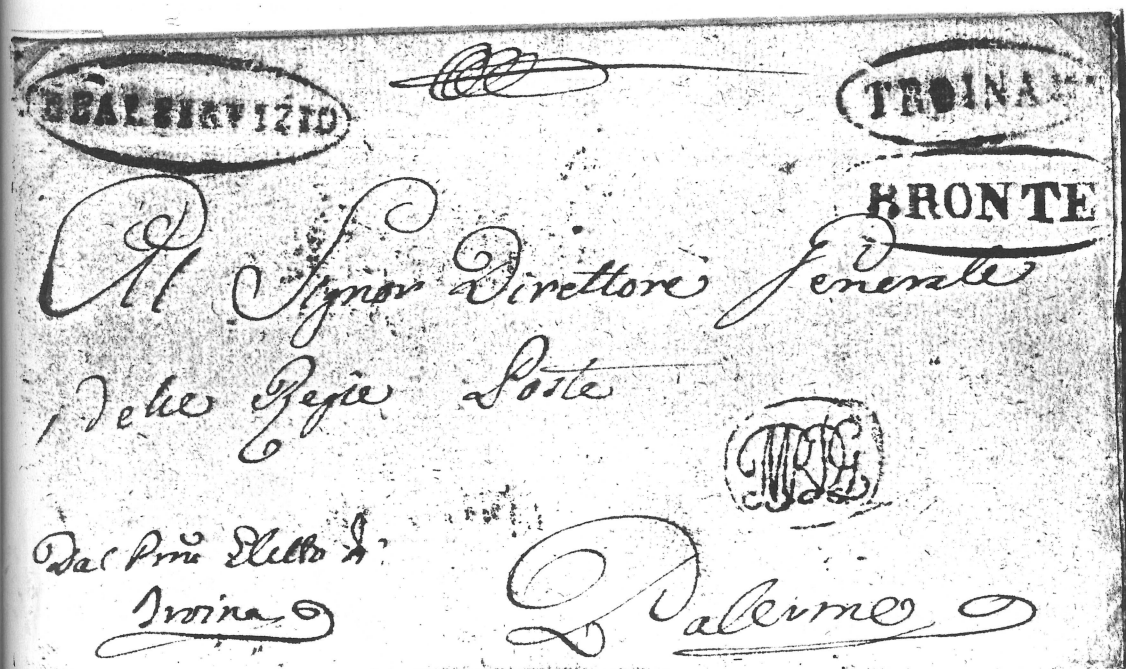 REAL SERVIZIO
TROINA
BRONTE
Al Signor Direttore Generale
delle Regie Poste
Dal Eletto di
Troina
Palermo